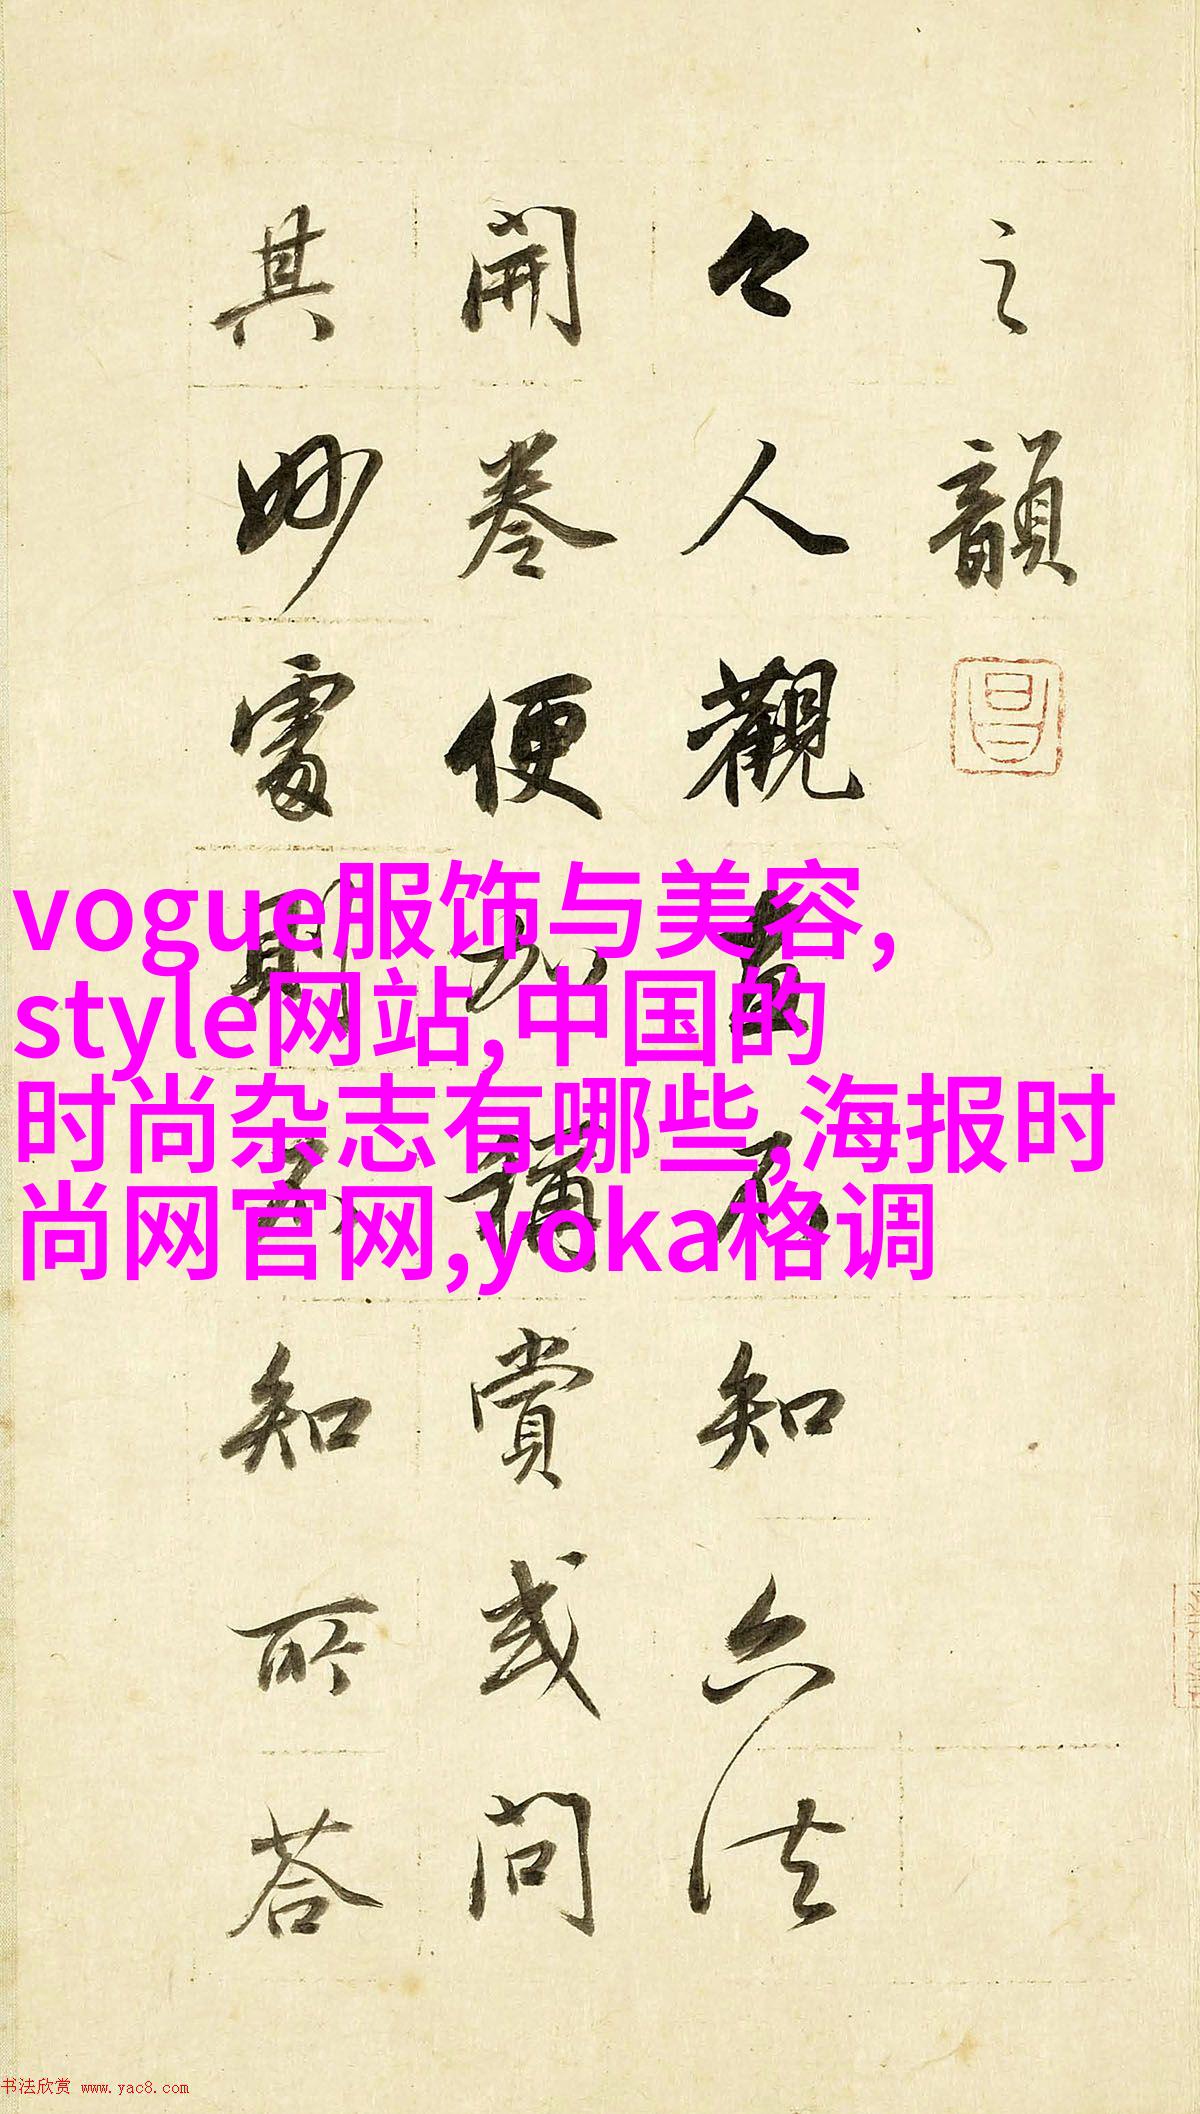 之韻
今人觀不知六法
開卷便加賞或問
其妙處則不知所荅
vogue服饰与美容,
style网站,中国的
时尚杂志有哪些,海报时
尚网官网,yoka格调
书法欣赏 www.yac8.com